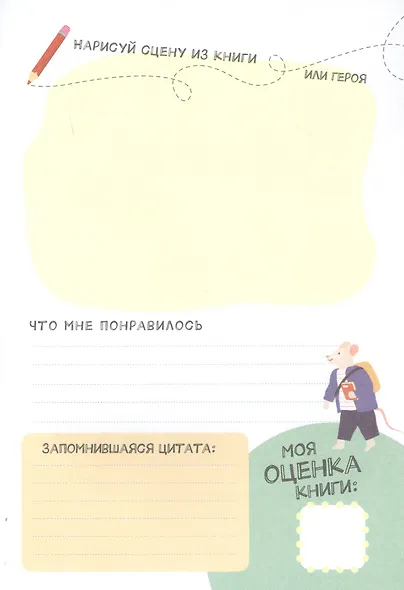 НАРИСУЙ СЦЕНУ ИЗ КНИГИ
ИЛИ ГЕРОЯ
ЧТО МНЕ ПОНРАВИЛОСЬ
ЗАПОМНИВШАЯСЯ ЦИТАТА:
МОЯ
ОЦЕНКА
КНИГИ: